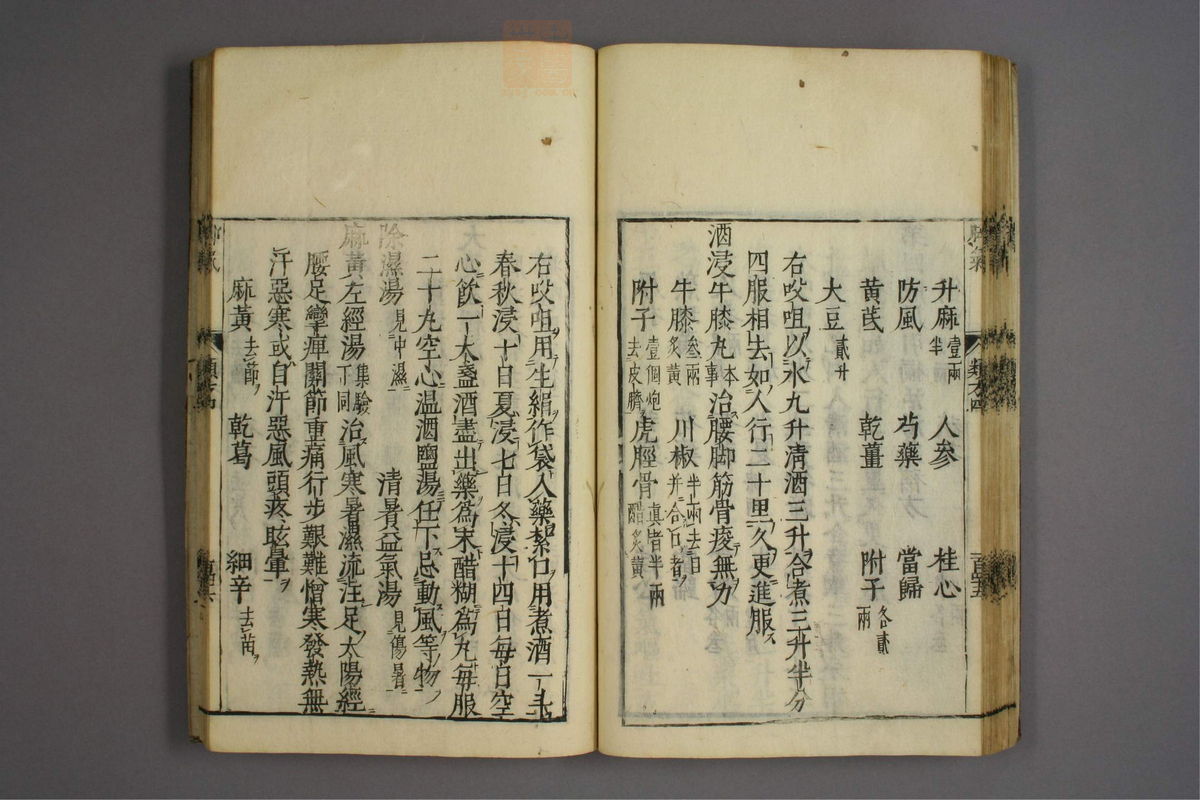 升麻壹兩半 人参 桂心
防風 芍藥 當歸
黄芪 乾薑 附子各貳兩
大豆貳升
右㕮咀以水九升清酒三升合煮三升半分
四服相去如人行二十里久更進服
酒浸牛膝丸本事治腰脚筋骨痠無力
牛膝叁兩炙黄 川椒半兩去目并合口者
附子壹個炮去皮臍 虎脛骨真者半兩醋炙黄
右㕮咀用生絹作袋入藥紮口用煮酒一斗
春秋浸十日夏浸七日冬浸十四日每日空
心飲一大盞酒盡出藥爲末醋糊爲丸每服
二十丸空心温酒鹽湯任下忌動風等物
除濕湯見中濕 清暑益氣湯見傷暑
麻黄左經湯集驗下同治風寒暑濕流注足太陽經
腰足攣痺關節重痛行步艱難憎寒發熱無
汗惡寒或自汗惡風頭疼眩暈
麻黄去節 乾葛 細辛去苗
類方四
百四十五